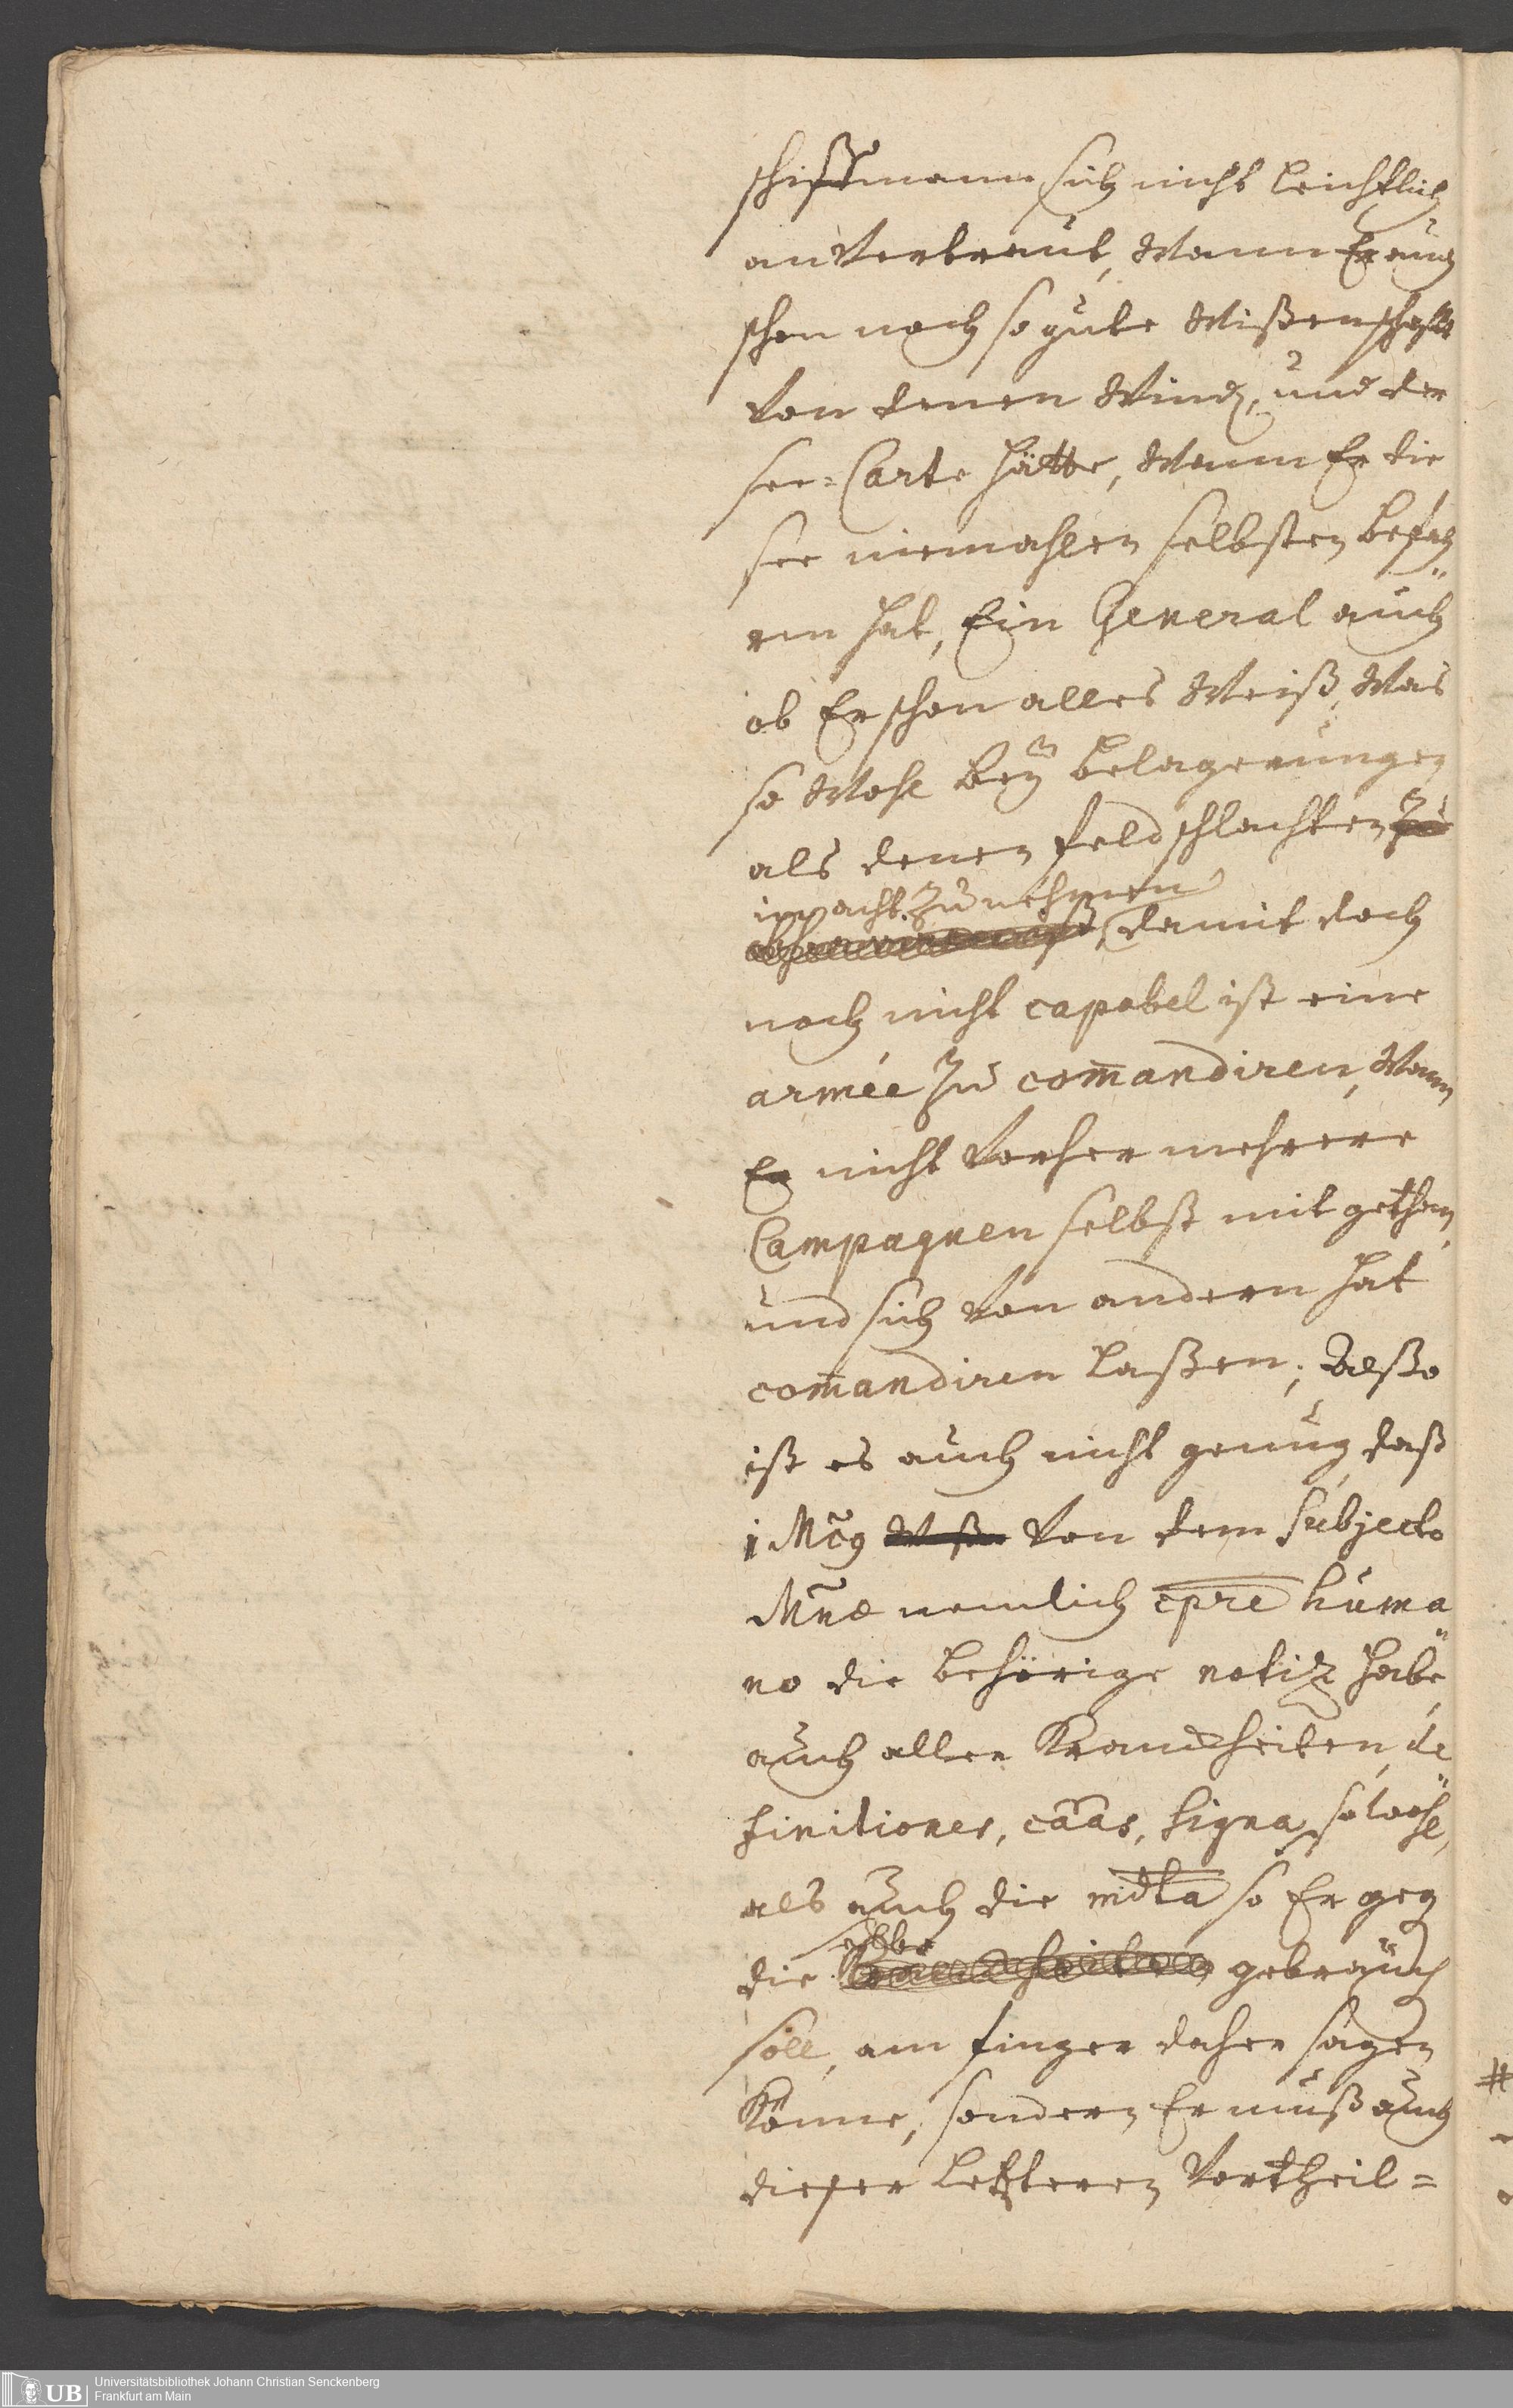 schiffmann sich nicht leichtlich
anvertraut, wann Er auch
schon noch so gute wißenschafft
von denen Wind, und der
see-Carte hätte, wann Er die
see niemahlen selbsten befah
ren hat, Ein General auch
ob Er schon alles weiß, was
so wohl bey belagerungen
als denen feldschlachten zu
in acht zu nehmen
ist, damit doch
noch nicht capabel ist eine
armée zu com̄andiren, wann
Er nicht vorher mehrere
Campagnen selbst mit gethan,
und sich von andern hat
com̄andiren laßen; Alßo
ist es auch nicht genug, daß
i Mcg von dem Subjecto
Mnæ nemlich cpre huma
no die behörige notiz habe,
auch aller Kranckheiten, de
finitiones, caas, signa, so wohl,
als auch die mdta so Er geg
die selbe gebrauch
soll, am finger daher sagen
Könne, sondern Er muß auch
dieser letzteren Vortheil=
Universitätsbibliothek Johann Christian Senckenberg
Frankfurt am Main
UB